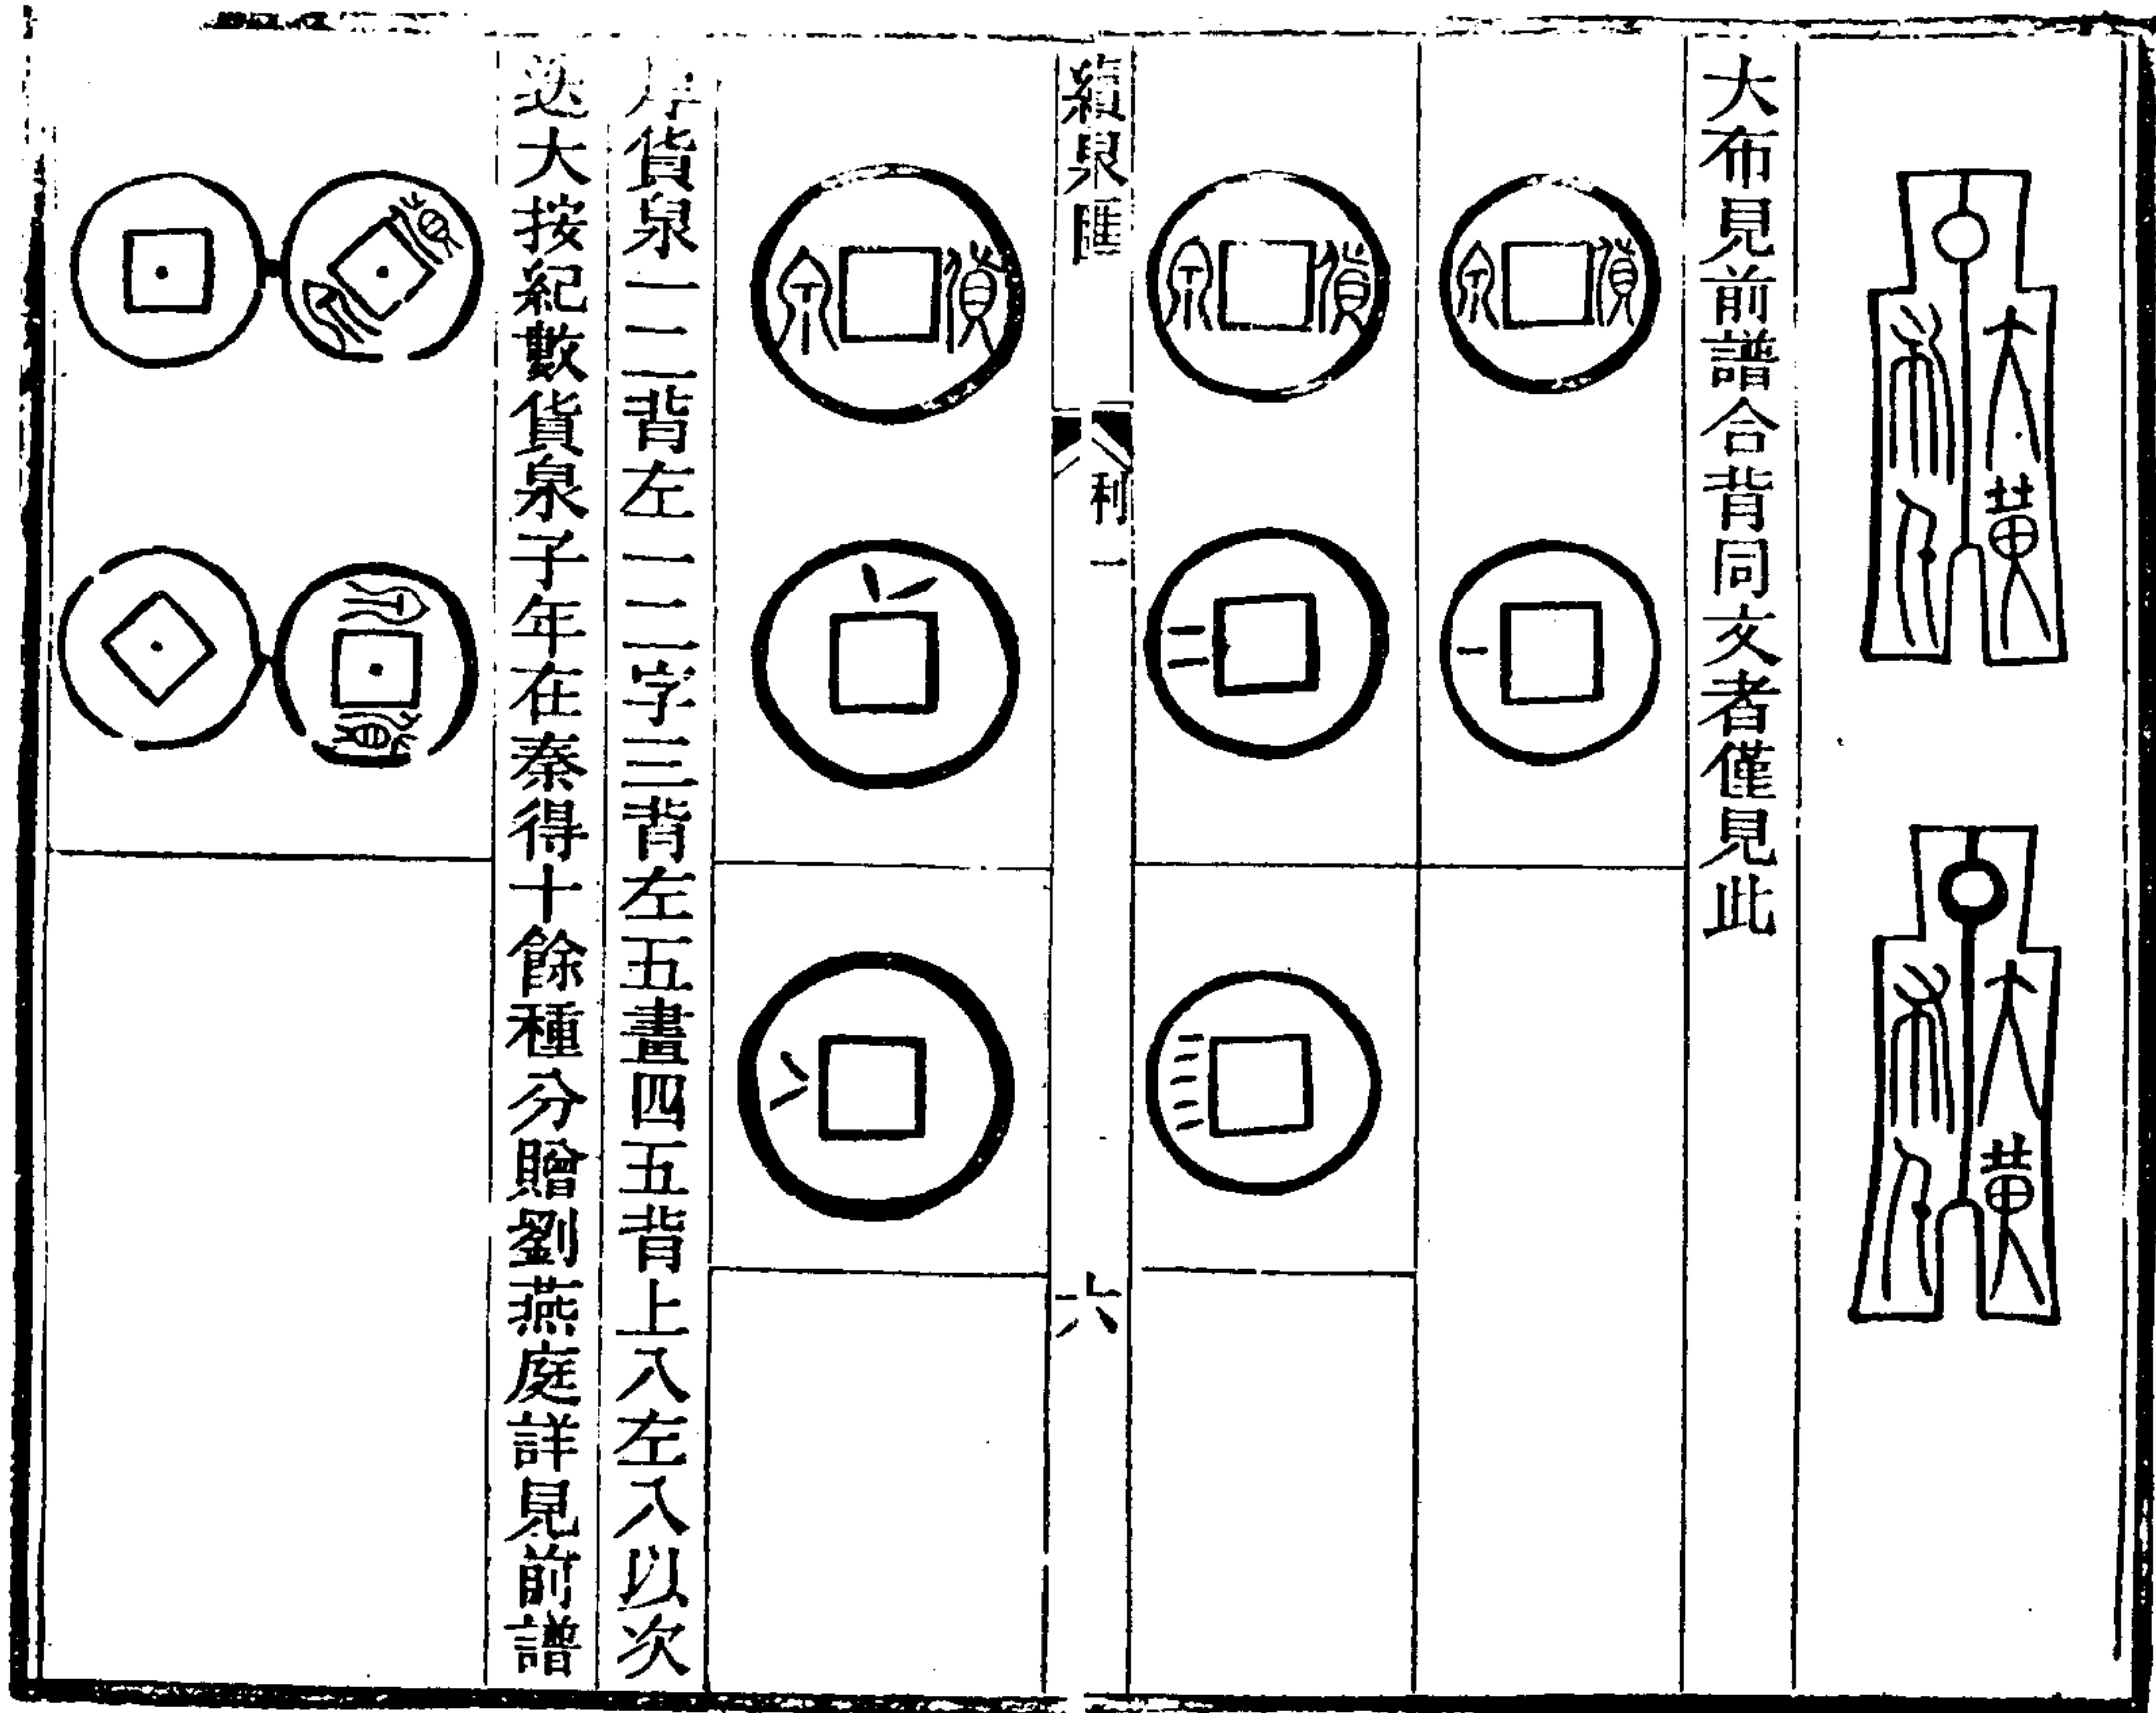 大黃
布千
大黃
布千
大布見前譜合背同文者僅見此
貨泉
一
貨泉
二
續泉匯
利一
六
貨泉
八
八
貨泉一二背左一二字三背左五畫四五背上八左八以次
迭大按紀數貨泉子年在秦得十餘種分贈劉燕庭詳見前譜
貨泉
貨泉